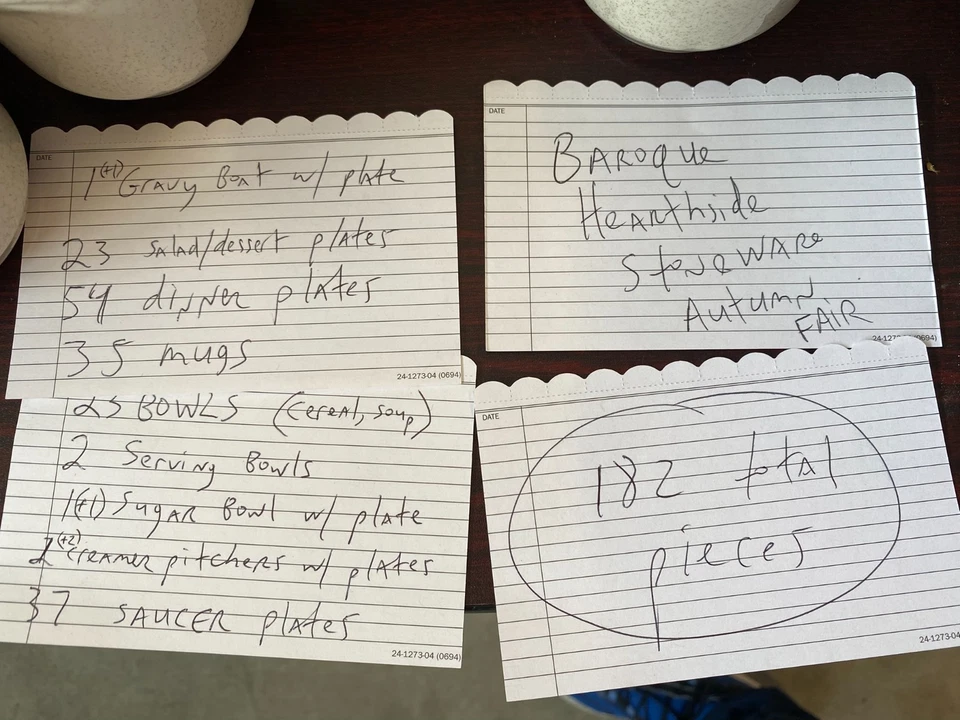 DATE
1(+1) Gravy Boat w/ plate
23 salad/dessert plates
54 dinner plates
35 mugs
24-1273-04 (0694)
23 BOWLS (cereal, soup)
2 Serving Bowls
1(+1) Sugar Bowl w/ plate
2(+2) creamer pitchers w/ plates
37 SAUCER plates
24-1273-04 (0694)
DATE
BAROQUE
Hearthside
Stoneware
Autumn
FAIR
DATE
182 total
pieces
24-1273-04